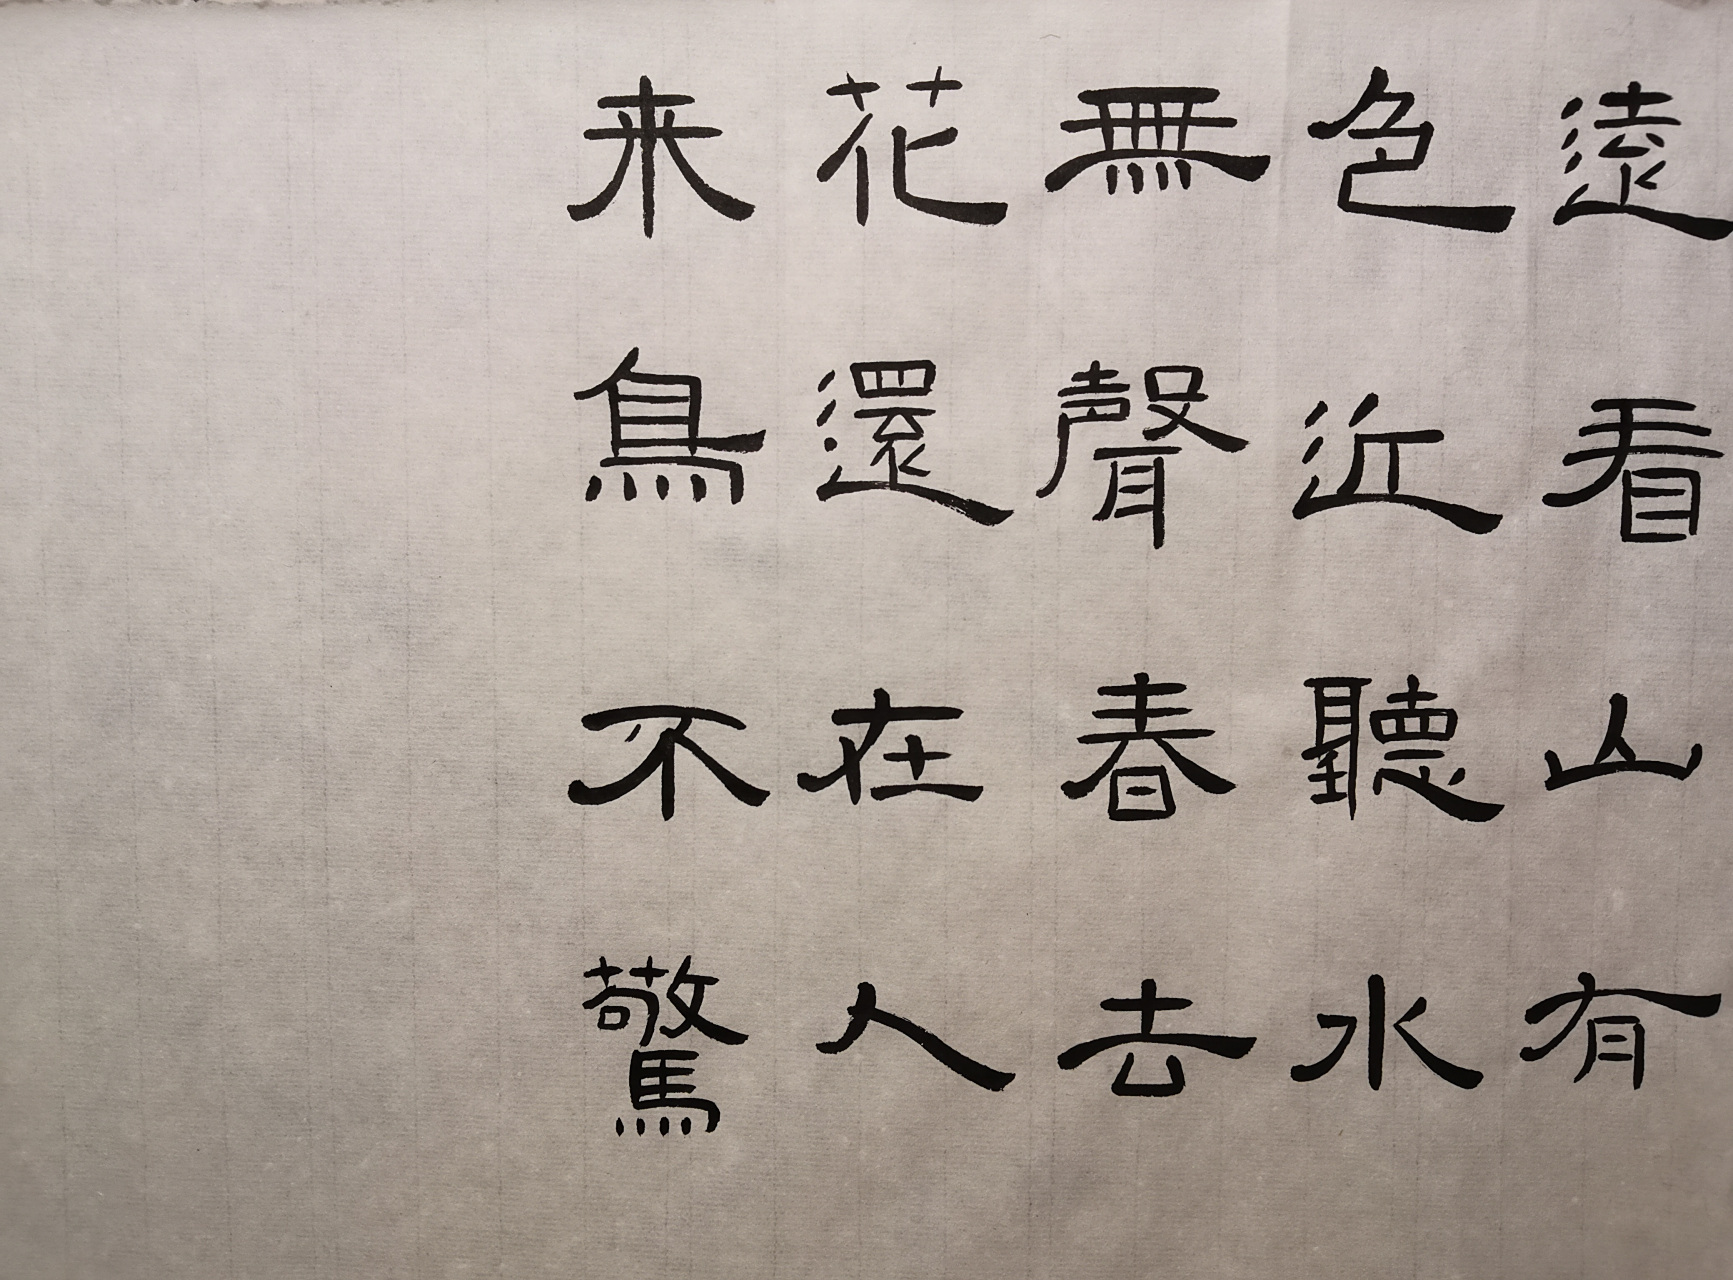 遠看山有
色近聽水
無聲春去
花還在人
来鳥不驚